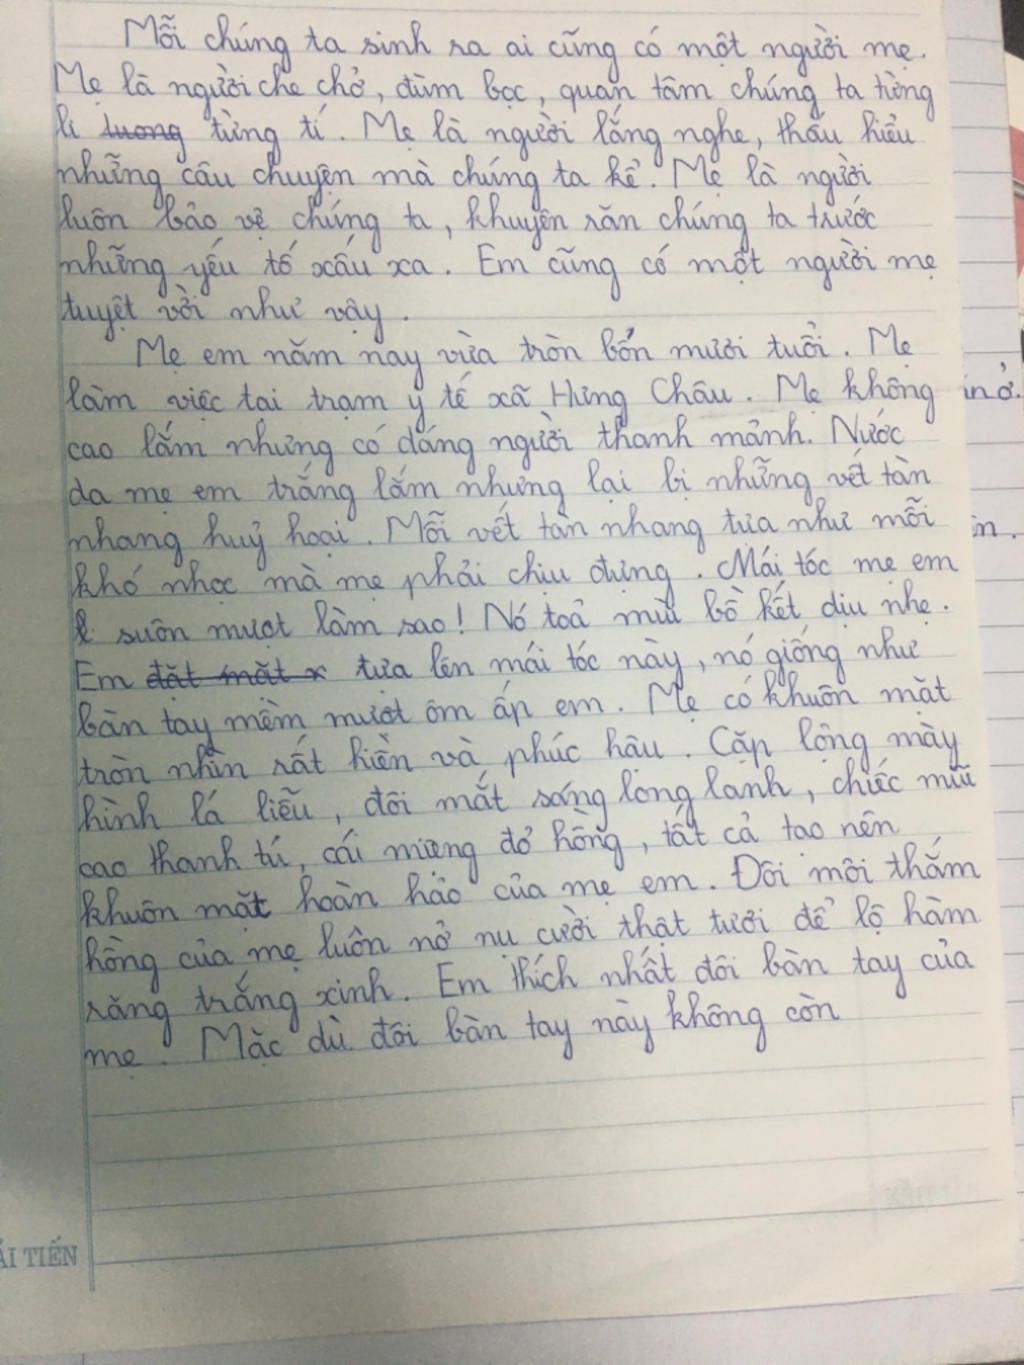 Mỗi chúng ta sinh ra ai cũng có một người mẹ.
Mẹ là người che chở, đùm bọc, quan tâm chúng ta từng
li tuong từng tí. Mẹ là người lắng nghe, thấu hiểu
những câu chuyện mà chúng ta kể. Mẹ là người
luôn bảo vệ chúng ta, khuyên răn chúng ta trước
những yếu tố xấu xa. Em cũng có một người mẹ
tuyệt vời như vậy.
Mẹ em năm nay vừa tròn bốn mươi tuổi. Mẹ
làm việc tại trạm y tế xã Hưng Châu. Mẹ không
cao lắm nhưng có dáng người thanh mảnh. Nước
da mẹ em trắng lắm nhưng lại bị những vết tàn
nhang huỷ hoại. Mỗi vết tàn nhang tựa như mỗi
khó nhọc mà mẹ phải chịu đựng. Mái tóc mẹ em
suôn mượt làm sao! Nó toả mùi bồ kết dịu nhẹ.
Em đặt mặt x tựa lên mái tóc này, nó giống như
bàn tay mềm mượt ôm ấp em. Mẹ có khuôn mặt
tròn nhìn rất hiền và phúc hâu. Cặp lông mày
hình lá liễu, đôi mắt sáng long lanh, chiếc mũi
cao thanh tú, cái miệng đỏ hồng, tất cả tạo nên
khuôn mặt hoàn hảo của mẹ em. Đôi môi thắm
hồng của mẹ luôn nở nụ cười thật tươi để lộ hàm
răng trắng xinh. Em thích nhất đôi bàn tay của
mẹ. Mặc dù đôi bàn tay này không còn
ẢI TIẾN